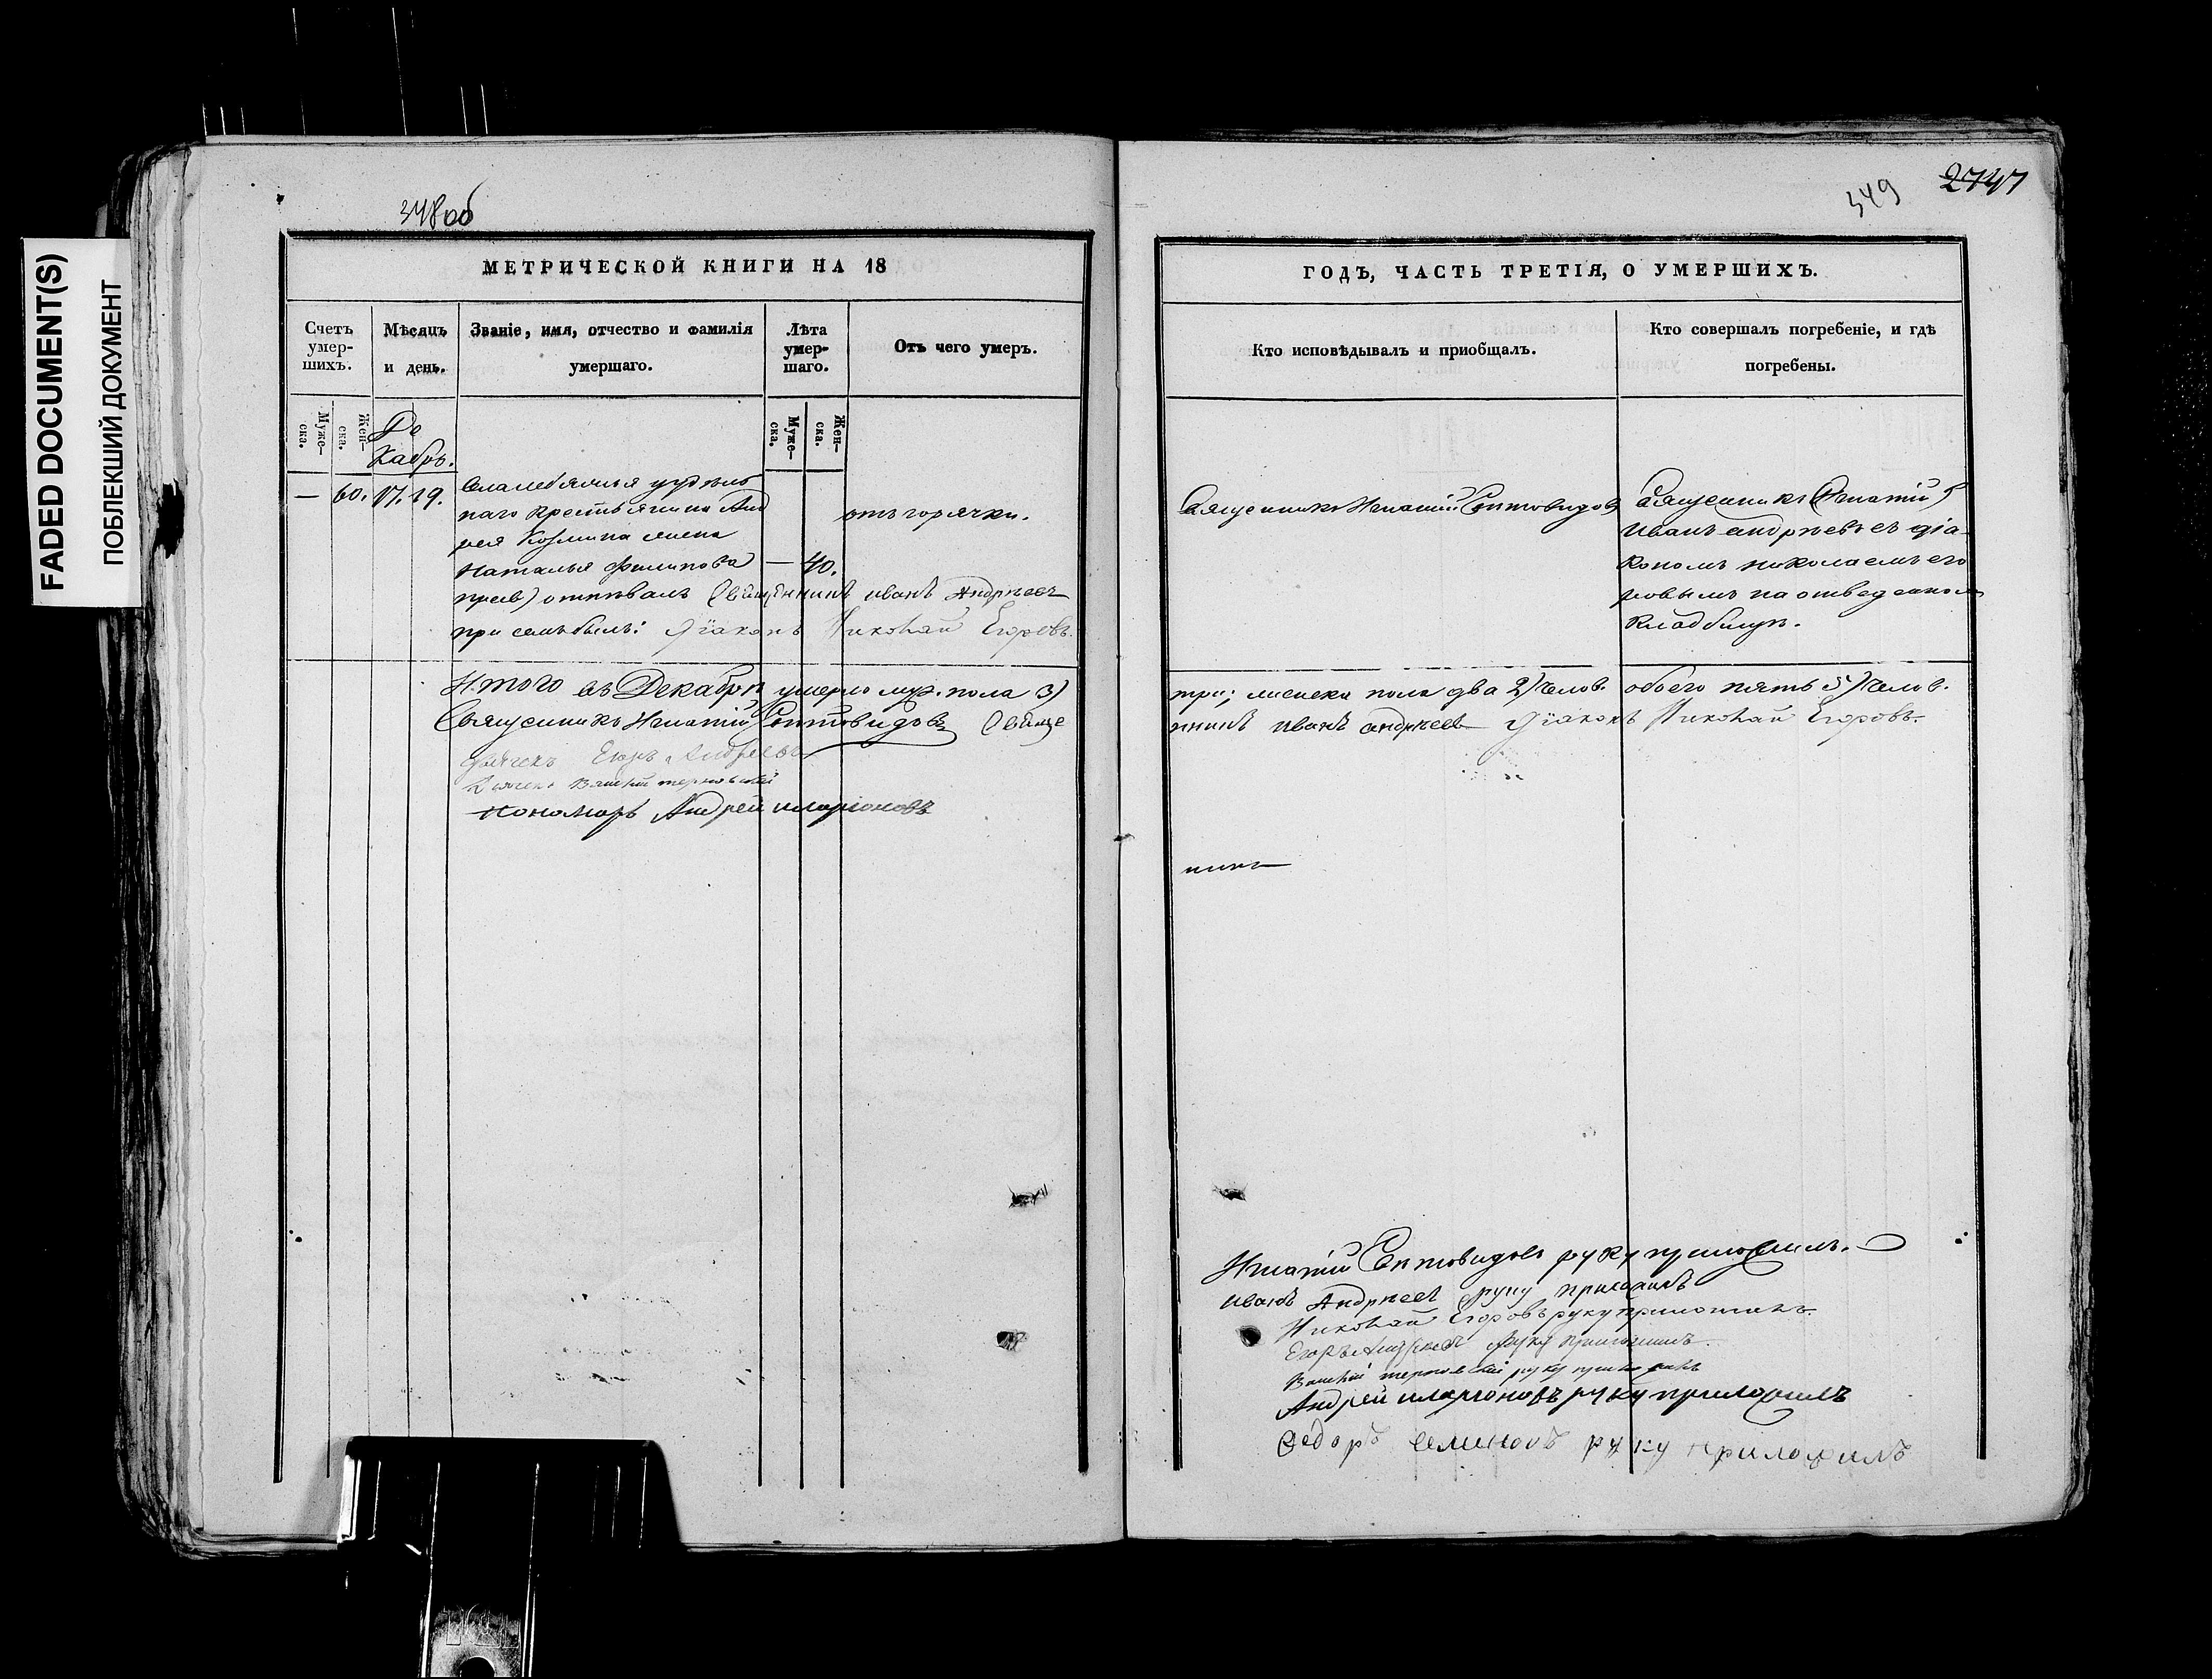 FADED DOCUMENT(S)
ПОБЛЕКШИЙ ДОКУМЕНТ
348об
МЕТРИЧЕСКОЙ КНИГИ НА 18
Счетъ умер-
шихъ.
Мѣсяцъ
и день.
Званіе, имя, отчество и фамилія
умершаго.
Лѣта
умер-
шаго.
Отъ чего умеръ.
Муже-
ска.
Жен-
ска.
Де
кабрь.
Муже-
ска.
Жен-
ска.
— 60. 17. 19.
удѣль
наго крестьянина Анд
рея Козмина жена
Наталья Филипова — 40.
отъ горячки.
отпѣвалъ Священникъ иванъ Андрѣевъ
при семъ былъ: Діаконъ Николай Егоровъ.
Итого въ Декабрѣ умерло муж. пола 3)
Священникъ Игнатій Свяще
Дьячекъ Егоръ Андреевъ
Пономарь Андрей иларіоновъ
349
2747
ГОДЪ, ЧАСТЬ ТРЕТІЯ, О УМЕРШИХЪ.
Кто исповѣдывалъ и приобщалъ.
Кто совершалъ погребеніе, и гдѣ
погребены.
Священникъ Игнатій
Священникъ Игнатій
Иванъ андрѣевъ съ діа-
кономъ николаемъ его
ровымъ на отведенномъ
кладбищѣ.
три; женска пола два 2) челов. обоего пять 5) челов.
нникъ иванъ андрѣевъ Діаконъ Николай Егоровъ.
никъ
Игнатій руку приложилъ.
иванъ Андрѣевъ руку приложилъ
Николай Егоровъ руку приложилъ.
Егоръ Андреевъ руку приложилъ.
руку приложилъ
Андрей иларіоновъ руку приложилъ
Ѳедоръ Семеновъ руку приложилъ